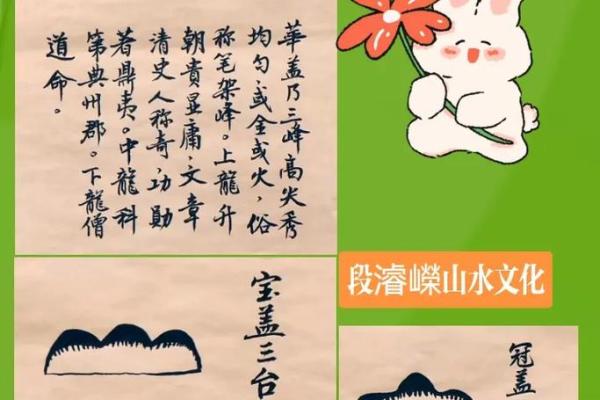 華盖乃三峰高尖秀
均匀、或金或火,俗
称笔架峰。上龍升
朝貴显庸,文章
清史人称奇,功勛
著鼎夷。中龍科
第典州郡。下龍僧
道命。
段濬嶸山水文化
宝盖三台
冠盖